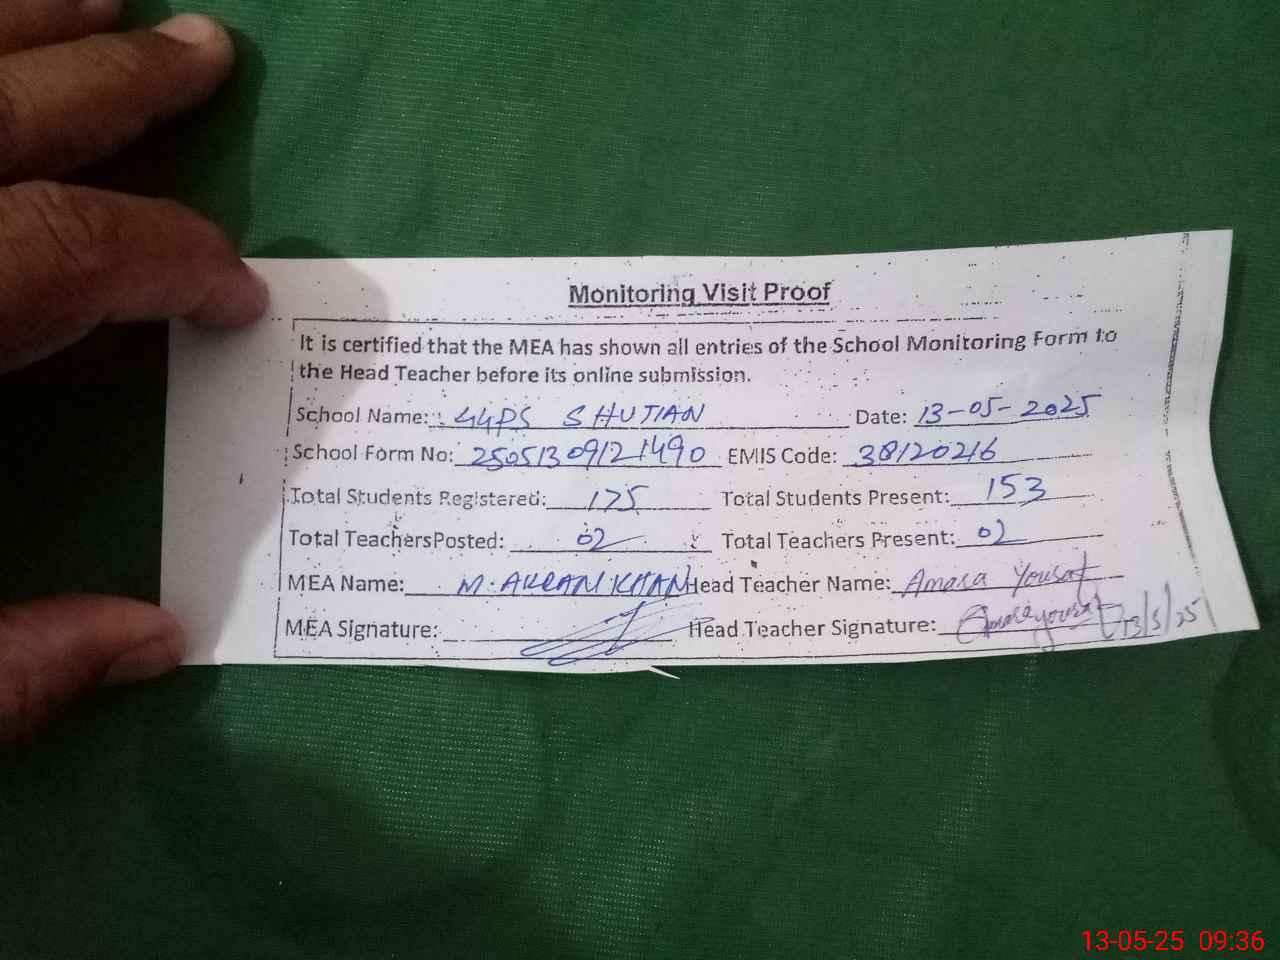 Monitoring Visit Proof
It is certified that the MEA has shown all entries of the School Monitoring Form to
the Head Teacher before its online submission.
School Name: GGPS SHUJIAN Date: 13-05-2025
School Form No: 25051309121490 EMIS Code: 38120216
Total Students Registered: 175 Total Students Present: 153
Total Teachers Posted: 02 Total Teachers Present: 02
MEA Name: M. AKRAM KHAN Head Teacher Name: Amara Yousaf
MEA Signature: Head Teacher Signature: Amara yousaf 13/5/25
13-05-25 09:36